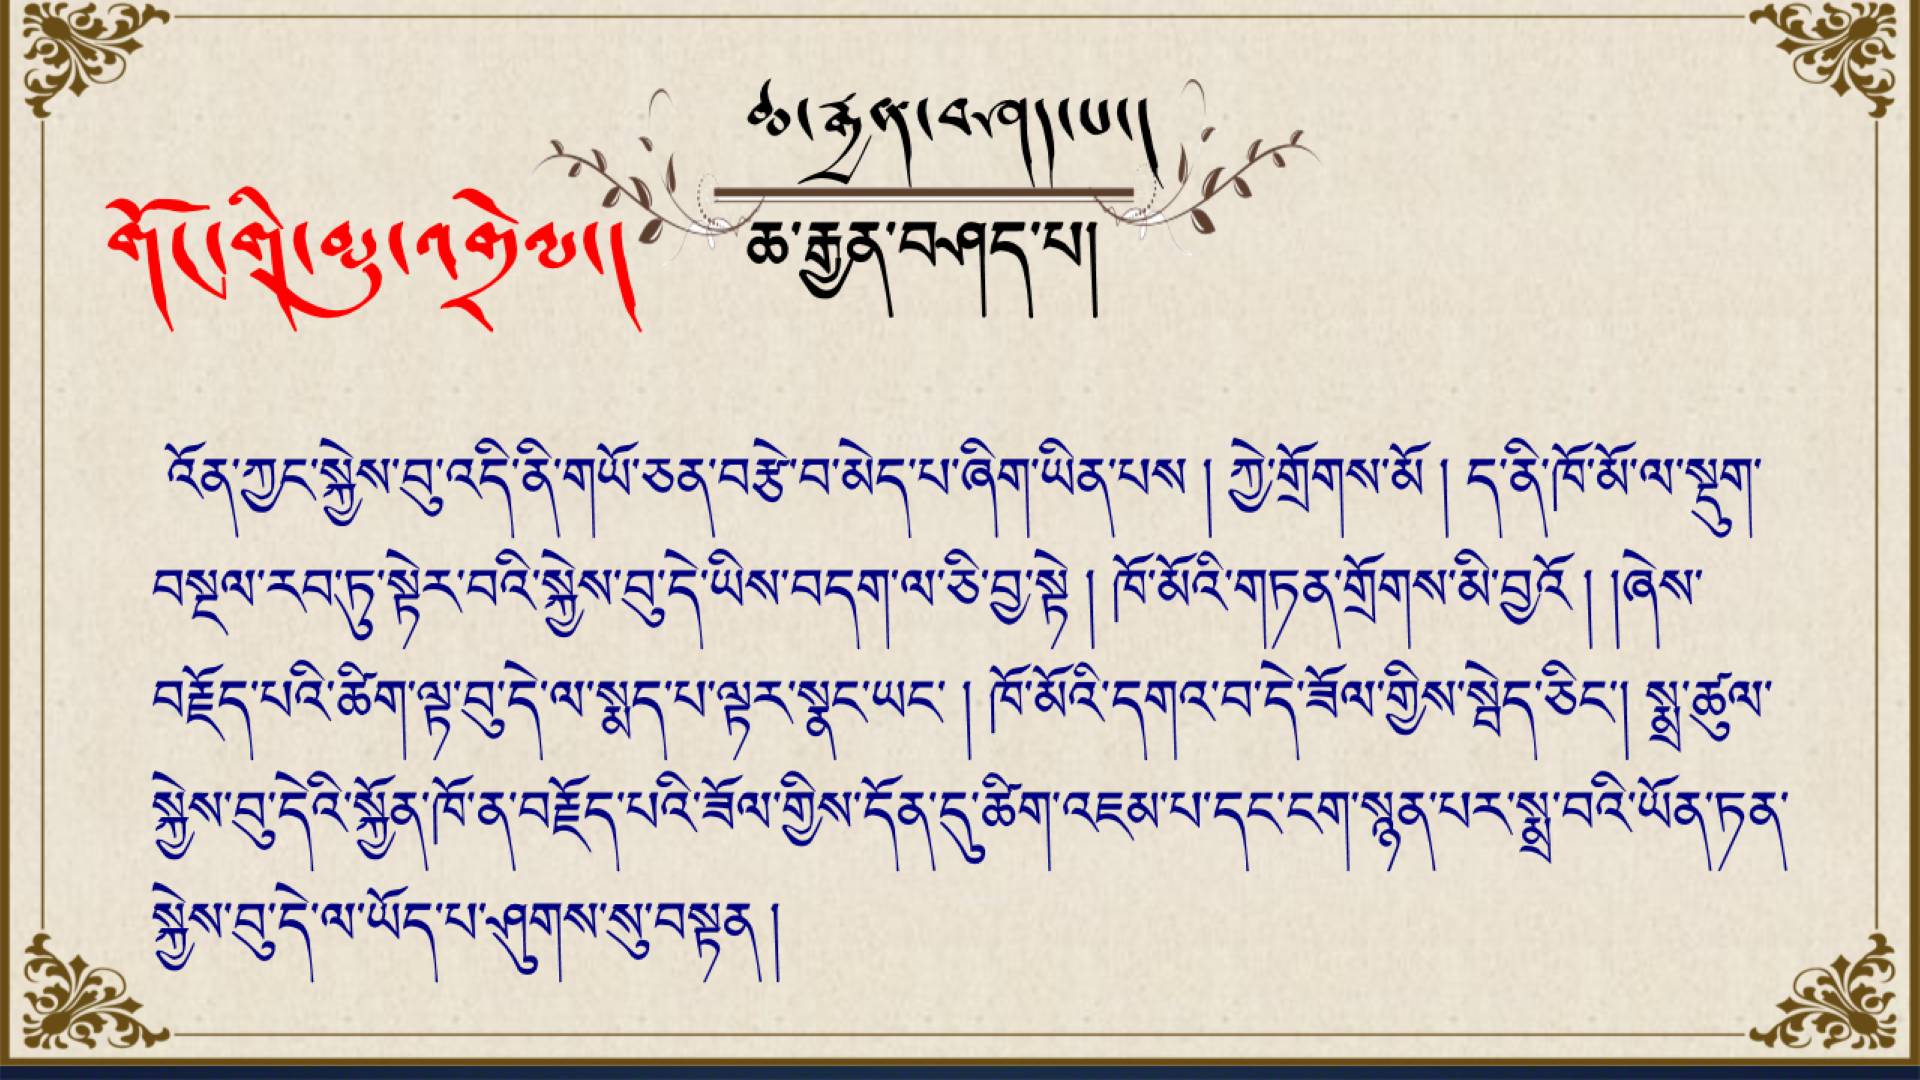 ཆ་རྒྱན་བཤད་པ།།
གོང་གི་ལྷུ་འགྲེལ།།
ཆ་རྒྱན་བཤད་པ།
འོན་ཀྱང་སྐྱེས་བུ་འདི་ནི་གཡོ་ཅན་བརྩེ་བ་མེད་པ་ཞིག་ཡིན་པས། ཀྱེ་གྲོགས་མོ། ད་ནི་ཁོ་མོ་ལ་སྡུག་
བསྔལ་རབ་ཏུ་སྟེར་བའི་སྐྱེས་བུ་དེ་ཡིས་བདག་ལ་ཅི་བྱ་སྟེ། ཁོ་མོའི་གཏན་གྲོགས་མི་བྱའོ། །ཞེས་
བརྗོད་པའི་ཚིག་ལྟ་བུ་དེ་ལ་སྨད་པ་ལྟར་སྣང་ཡང་། ཁོ་མོའི་དགའ་བ་དེ་ཟོལ་གྱིས་སྦེད་ཅིང་། སྨྲ་ཚུལ་
སྐྱེས་བུ་དེའི་སྐྱོན་ཁོ་ན་བརྗོད་པའི་ཟོལ་གྱིས་དོན་དུ་ཚིག་འཇམ་པ་དང་ངག་སྙན་པར་སྨྲ་བའི་ཡོན་ཏན་
སྐྱེས་བུ་དེ་ལ་ཡོད་པ་ཤུགས་སུ་བསྟན།